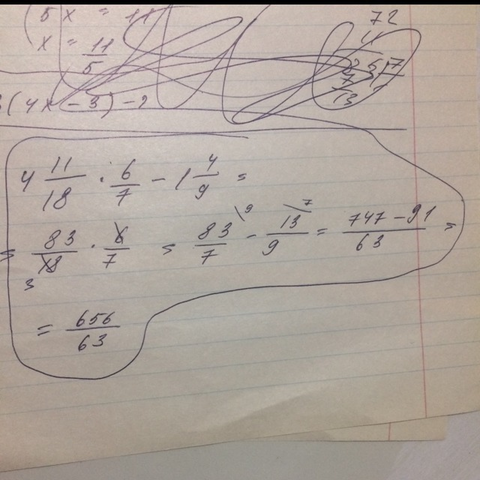 5x = 11
x = 11/5
72
3(4x-3)-2
4 11/18 · 6/7 - 1 4/9 =
= 83/18 3 · 6/7 = 83/7 \9 - 13/9 \7 = 747-91/63 =
= 656/63